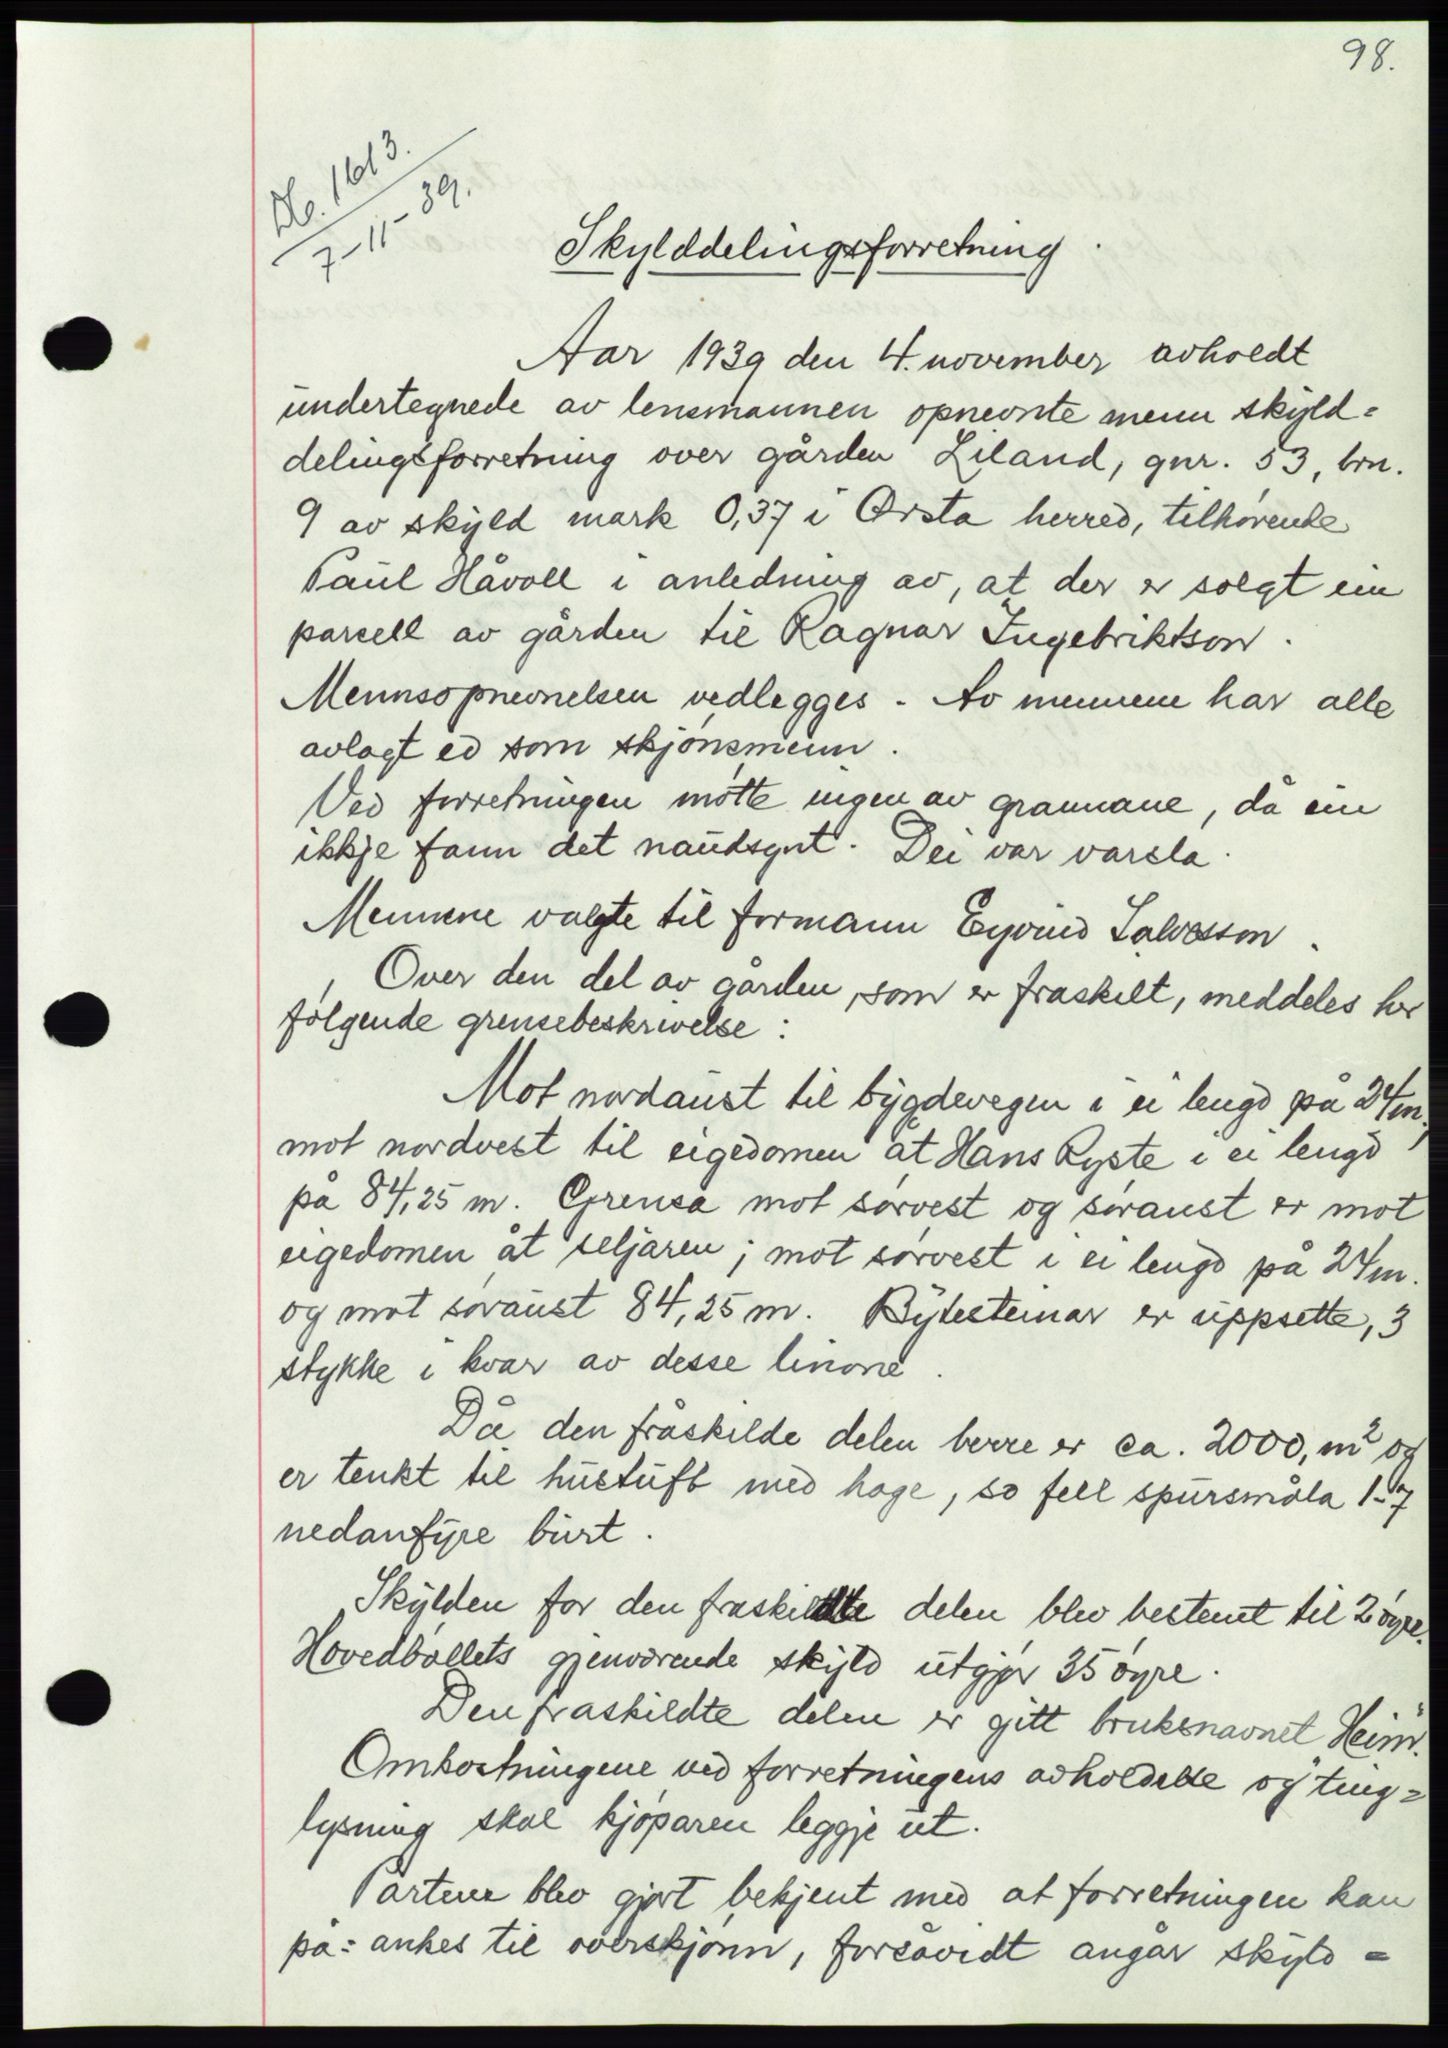 98.
Db. 1613.
7-11-39.
Skylddelingsforretning.
Aar 1939 den 4. november avholdt
undertegnede av lensmannen opnevnte menn skyld=
delingsforretning over gården Liland, gnr. 53, brn.
9 av skyld mark 0,37 i Ørsta herred, tilhørende
Paul Håvoll i anledning av, at der er solgt ein
parsell av gården til Ragnar Ingebriktson.
Mennsopnevnelsen vedlegges. Av mennene har alle
avlagt ed som skjønsmenn.
Ved forretningen møtte ingen av grannane, då ein
ikkje fann det naudsynt. Dei var varsla.
Mennene valgte til formann Eyvind Salvesson.
Over den del av gården, som er fraskilt, meddeles her
følgende grensebeskrivelse:
Mot nordaust til bygdevegen i ei lengd på 24 m.,
mot nordvest til eigedomen åt Hans Ryste i ei lengd
på 84,25 m. Grensa mot sørvest og søraust er mot
eigedomen åt seljaren; mot sørvest i ei lengd på 24 m.
og mot søraust 84,25 m. Bytesteinar er uppsette, 3
stykke i kvar av desse linone.
Då den fråskilde delen berre er ca. 2000, m² og
er tenkt til hustuft med hage, so fell spursmåla 1-7
nedanfyre burt.
Skylden for den fraskildte delen blev bestemt til 2 øyre.
Hovedbøllets gjenværende skyld utgjør 35 øyre.
Den fraskildte delen er gitt bruksnavnet "Heim".
Omkostningene ved forretningens avholdelse og ting=
lysning skal kjøparen leggje ut.
Partene blev gjort bekjent med at forretningen kan
på= ankes til overskjønn, forsåvidt angår skyld=